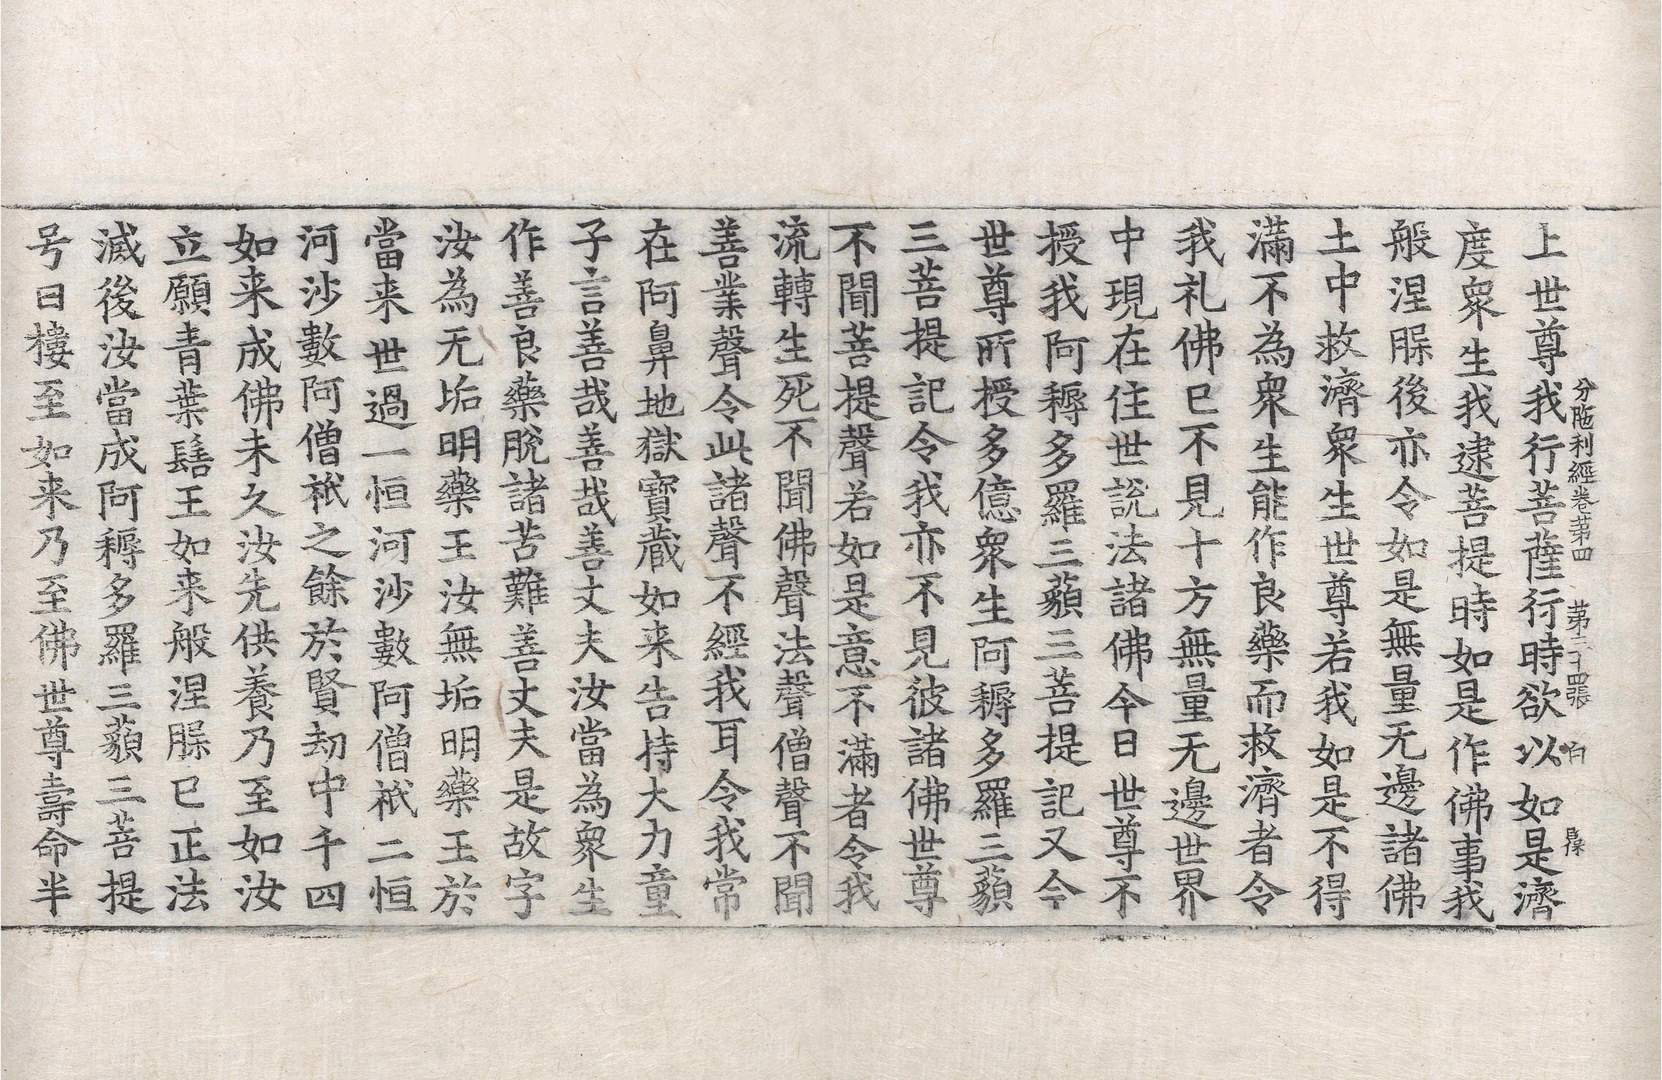 上世尊我行菩薩行時欲以如是濟
分陁利經卷第四 第三十四張 白
度衆生我逮菩提時如是作佛事我
般涅槃後亦令如是無量无邊諸佛
土中救濟衆生世尊若我如是不得
滿不為衆生能作良藥而救濟者令
我礼佛已不見十方無量无邊世界
中現在住世說法諸佛今日世尊不
授我阿耨多羅三藐三菩提記又今
世尊所授多億衆生阿耨多羅三藐
三菩提記令我亦不見彼諸佛世尊
不聞菩提聲若如是意不滿者令我
流轉生死不聞佛聲法聲僧聲不聞
善業聲令此諸聲不經我耳令我常
在阿鼻地獄寶藏如来告持大力童
子言善哉善哉善丈夫汝當為衆生
作善良藥脫諸苦難善丈夫是故字
汝為无垢明藥王汝無垢明藥王於
當来世過一恒河沙數阿僧祇二恒
河沙數阿僧祇之餘於賢劫中千四
如来成佛未久汝先供養乃至如汝
立願青葉髻王如来般涅槃已正法
滅後汝當成阿耨多羅三藐三菩提
号曰樓至如来乃至佛世尊壽命半